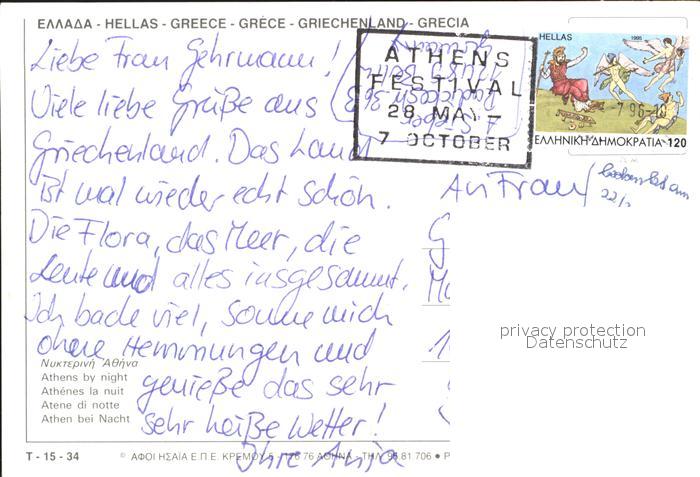 ΕΛΛΑΔΑ - HELLAS - GREECE - GRÈCE - GRIECHENLAND - GRECIA
Liebe Frau Gehrmann!
Viele liebe Grüße aus
Griechenland. Das Land
ist mal wieder echt schön.
Die Flora, das Meer, die
Leute und alles insgesamt.
Ich bade viel, sonne mich
ohne Hemmungen und
genieße das sehr
sehr heiße Wetter!
Ihre Anja
Νυκτερινή Ἀθήνα
Athens by night
Athénes la nuit
Atene di notte
Athen bei Nacht
T - 15 - 34
© ΑΦΟΙ ΗΣΑΪΑ Ε.Π.Ε. ΚΡΕΜΟΥ 5 - 176 76 ΑΘΗΝΑ - ΤΗΛ. 95.81 706 • P
ATHENS
FESTIVAL
28 MAY -
7 OCTOBER
HELLAS
1995
7 96-10
ΕΛΛΗΝΙΚΗ ΔΗΜΟΚΡΑΤΙΑ 120
An Frau
22/
G
privacy protection
Datenschutz